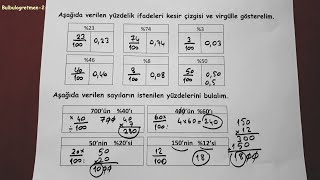 Bulbulogretmen-2
Aşağıda verilen yüzdelik ifadeleri kesir çizgisi ve virgülle gösterelim.
%23 %74 %3
23/100 0,23 74/100 0,74 3/100 0,03
%46 %8 %50
40/100 0,40 8/100 0,08 50/100 0,50
Aşağıda verilen sayıların istenilen yüzdelerini bulalım.
700'ün %40'ı 400'ün %60'ı
40/100 700 x 40 280 60/100 4x60=240
50'nin %20'si 150'nin %12'si
20/100 50 x 20 1000 12/100 18
150
x 12
300
+150
1800